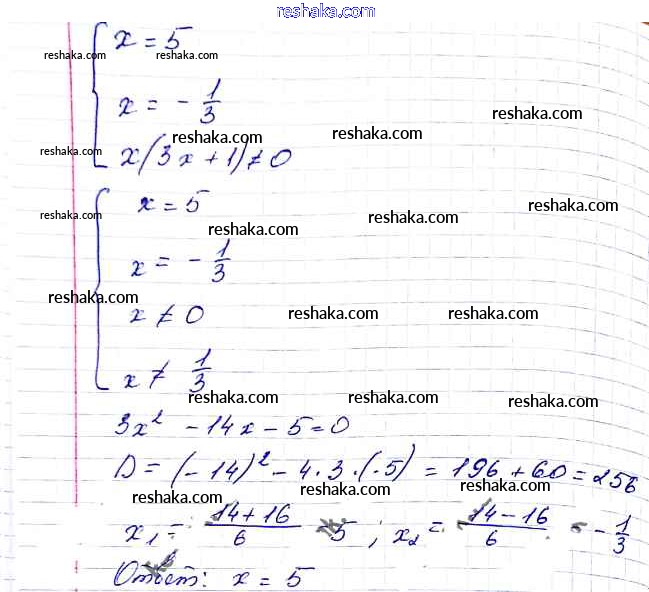 reshaka.com
x = 5
reshaka.com reshaka.com
x = - 1/3
reshaka.com
reshaka.com reshaka.com
reshaka.com
x(3x + 1) ≠ 0
x = 5
reshaka.com reshaka.com reshaka.com
reshaka.com
x = - 1/3
reshaka.com
x ≠ 0
reshaka.com reshaka.com
x ≠ 1/3
reshaka.com reshaka.com reshaka.com
3x² - 14x - 5 = 0
D = (-14)² - 4·3·(-5) = 196 + 60 = 256
reshaka.com reshaka.com reshaka.com
x₁ = (14 + 16)/6 = 5 ; x₂ = (14 - 16)/6 = - 1/3
Ответ: x = 5